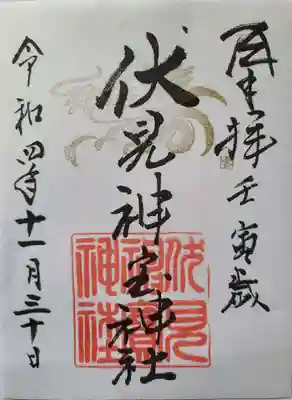 奉拝 壬寅歳
伏見神宝神社
令和四年十一月三十日
伏見
神寳
神社